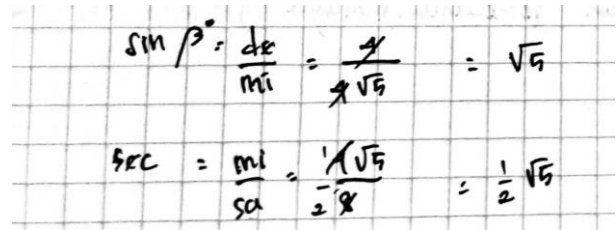 sin β° = de/mi = 4/4√5 = √5
sec = mi/sa = 4√5/8 = 1/2 √5